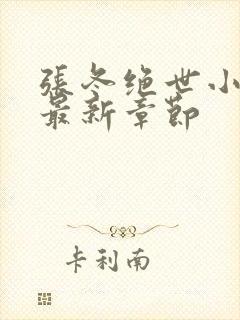 張冬绝世小
最新章節
卡利南